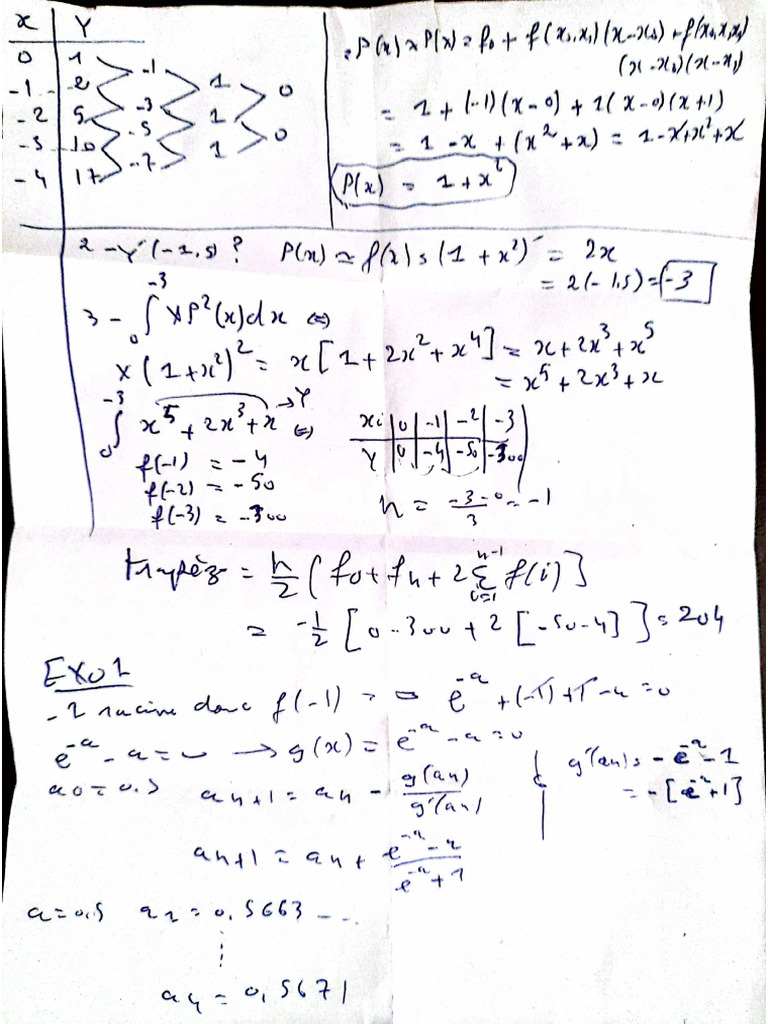 x | Y
0 | 1
-1 | 2
-2 | 5
-3 | 10
-4 | 17
-1 -3 -5 -7
1 1 1
0 0
P(x) ≈ P(x) = f0 + f(x0,x1)(x-x0) + f(x0,x1,x2)
(x-x0)(x-x1)
= 1 + (-1)(x-0) + 1(x-0)(x+1)
= 1 - x + (x² + x) = 1 - x + x² + x
P(x) = 1 + x²
2 - Y'(-1,5) ? P(x) ≈ f(x) = (1 + x²)' = 2x
= 2(-1.5) = -3
3 - ∫₀⁻³ XP²(x)dx ⇔
x(1+x²)² = x[1 + 2x² + x⁴] = x + 2x³ + x⁵
= x⁵ + 2x³ + x
∫₀⁻³ x⁵ + 2x³ + x → Y ⇔
xi | 0 | -1 | -2 | -3
Y | 0 | -4 | -50 | -300
f(-1) = -4
f(-2) = -50
f(-3) = -300
h = (-3-0)/3 = -1
trapèz = h/2 [f0 + fn + 2 Σᵢ₌₁ⁿ⁻¹ f(i)]
= -1/2 [0 - 300 + 2[-50-4]] = 204
EXO1
-1 racine donc f(-1) = 0 e⁻ᵃ + (-1) + 1 - a = 0
e⁻ᵃ - a = 0 → g(x) = e⁻ᵃ - a = 0
a0 = 0.5 an+1 = an - g(an)/g'(an)
g'(an) = -e⁻ᵃ - 1
= -[e⁻ᵃ + 1]
an+1 = an + (e⁻ᵃ - a)/(e⁻ᵃ + 1)
a = 0,5 a1 = 0,5663 ...
a4 = 0,5671